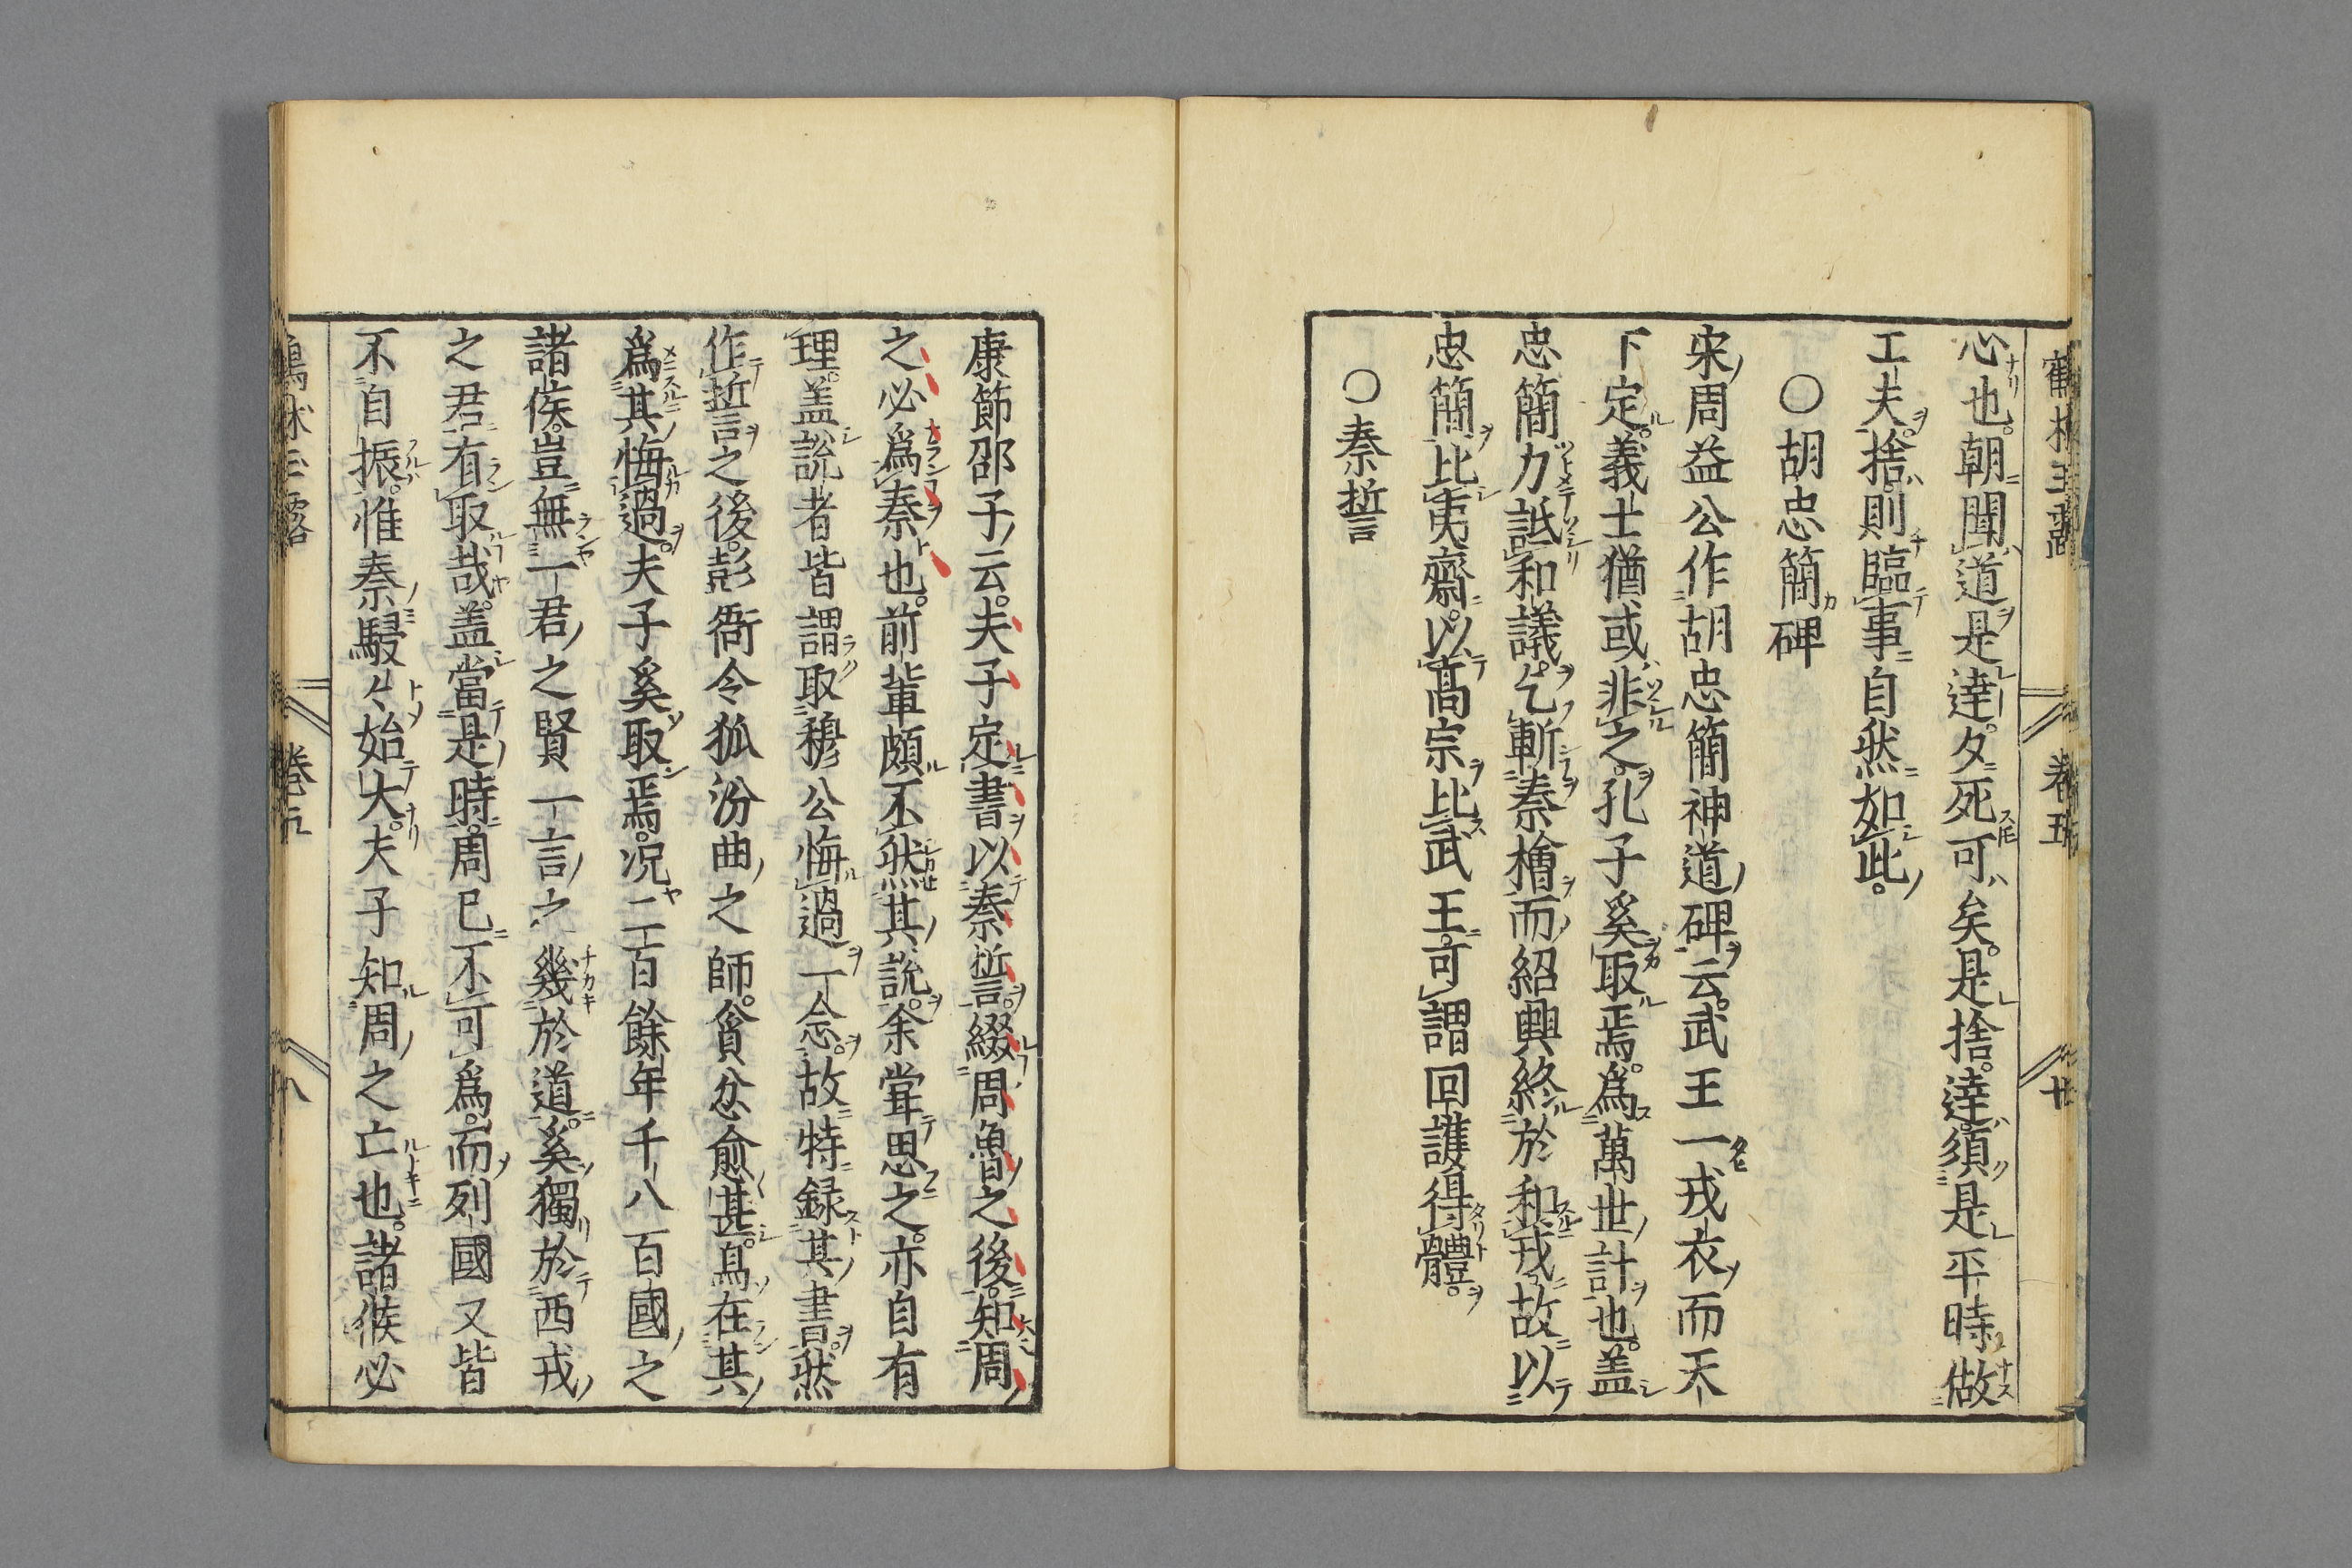 心也。朝聞道是達。夕死可矣。是捨。達須是平時做
工夫。捨則臨事自然如此。
○胡忠簡碑
宋周益公作胡忠簡神道碑云。武王一戎衣而天
下定。義士猶或非之。孔子奚取焉。為萬世計也。盖
忠簡力詆和議。乞斬秦檜。而紹興終於和戎。故以
忠簡比夷齊。以高宗比武王。可謂回護得體。
○秦誓
康節邵子云。夫子定書以秦誓。綴周魯之後。知周
之必為秦也。前輩頗不然其說。余甞思之。亦自有
理。盖說者皆謂取穆公悔過一念。故特録其書。然
作誓之後。彭衙令狐汾曲之師。貪忿愈甚。烏在其
為其悔過。夫子奚取焉。况二百餘年千八百國之
諸侯。豈無一君之賢一言之幾於道。奚獨於西戎
之君有取哉。盖當是時。周已不可為。而列國又皆
不自振。惟秦駸々始大。夫子知周之亡也。諸候必
卷五
八